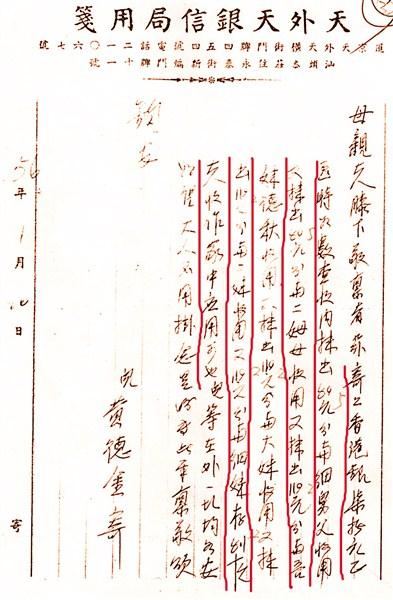 天外天銀信局用箋
暹京天外天橫街門牌四五四號電話二一〇六七號
汕頭莊住永泰街新編門牌十一號
母親大人膝下敬禀者茲寄上香港銀柒拾元乙
時如數查收內抹出元分與細舅父收用
又抹出元分與二姆母收用又抹出元分與吾
妹德收用又抹出元分與大妹收用又抹
出元分與二妹收用又元分與細妹存到大
人收作家中应用可也兒等在外一切均各安
好望大人不用掛念是好此草禀敬頌
安
兒 黃德金寄
56年1月日 寄